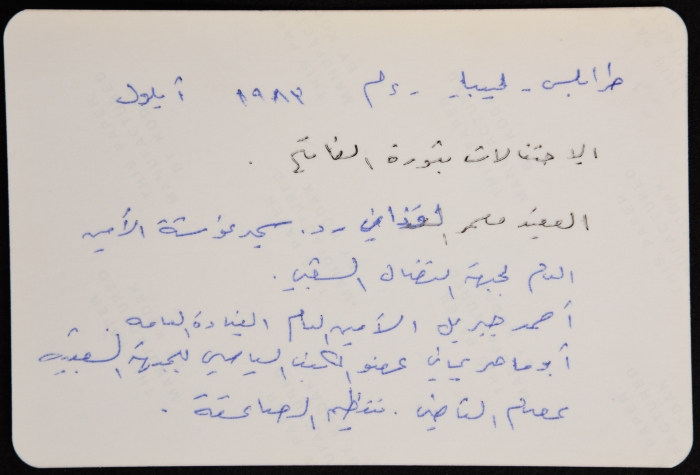 طرابلس - ليبيا - عام ١٩٨٣ أيلول
الاحتفالات بثورة الفاتح .
العقيد معمر القذافي - د. سمير غوشة الأمين
العام لجبهة النضال الشعبي .
أحمد جبريل الأمين العام القيادة العامة
أبو ماهر يماني عضو المكتب السياسي للجبهة الشعبية
عصام القاضي . تنظيم الصاعقة .